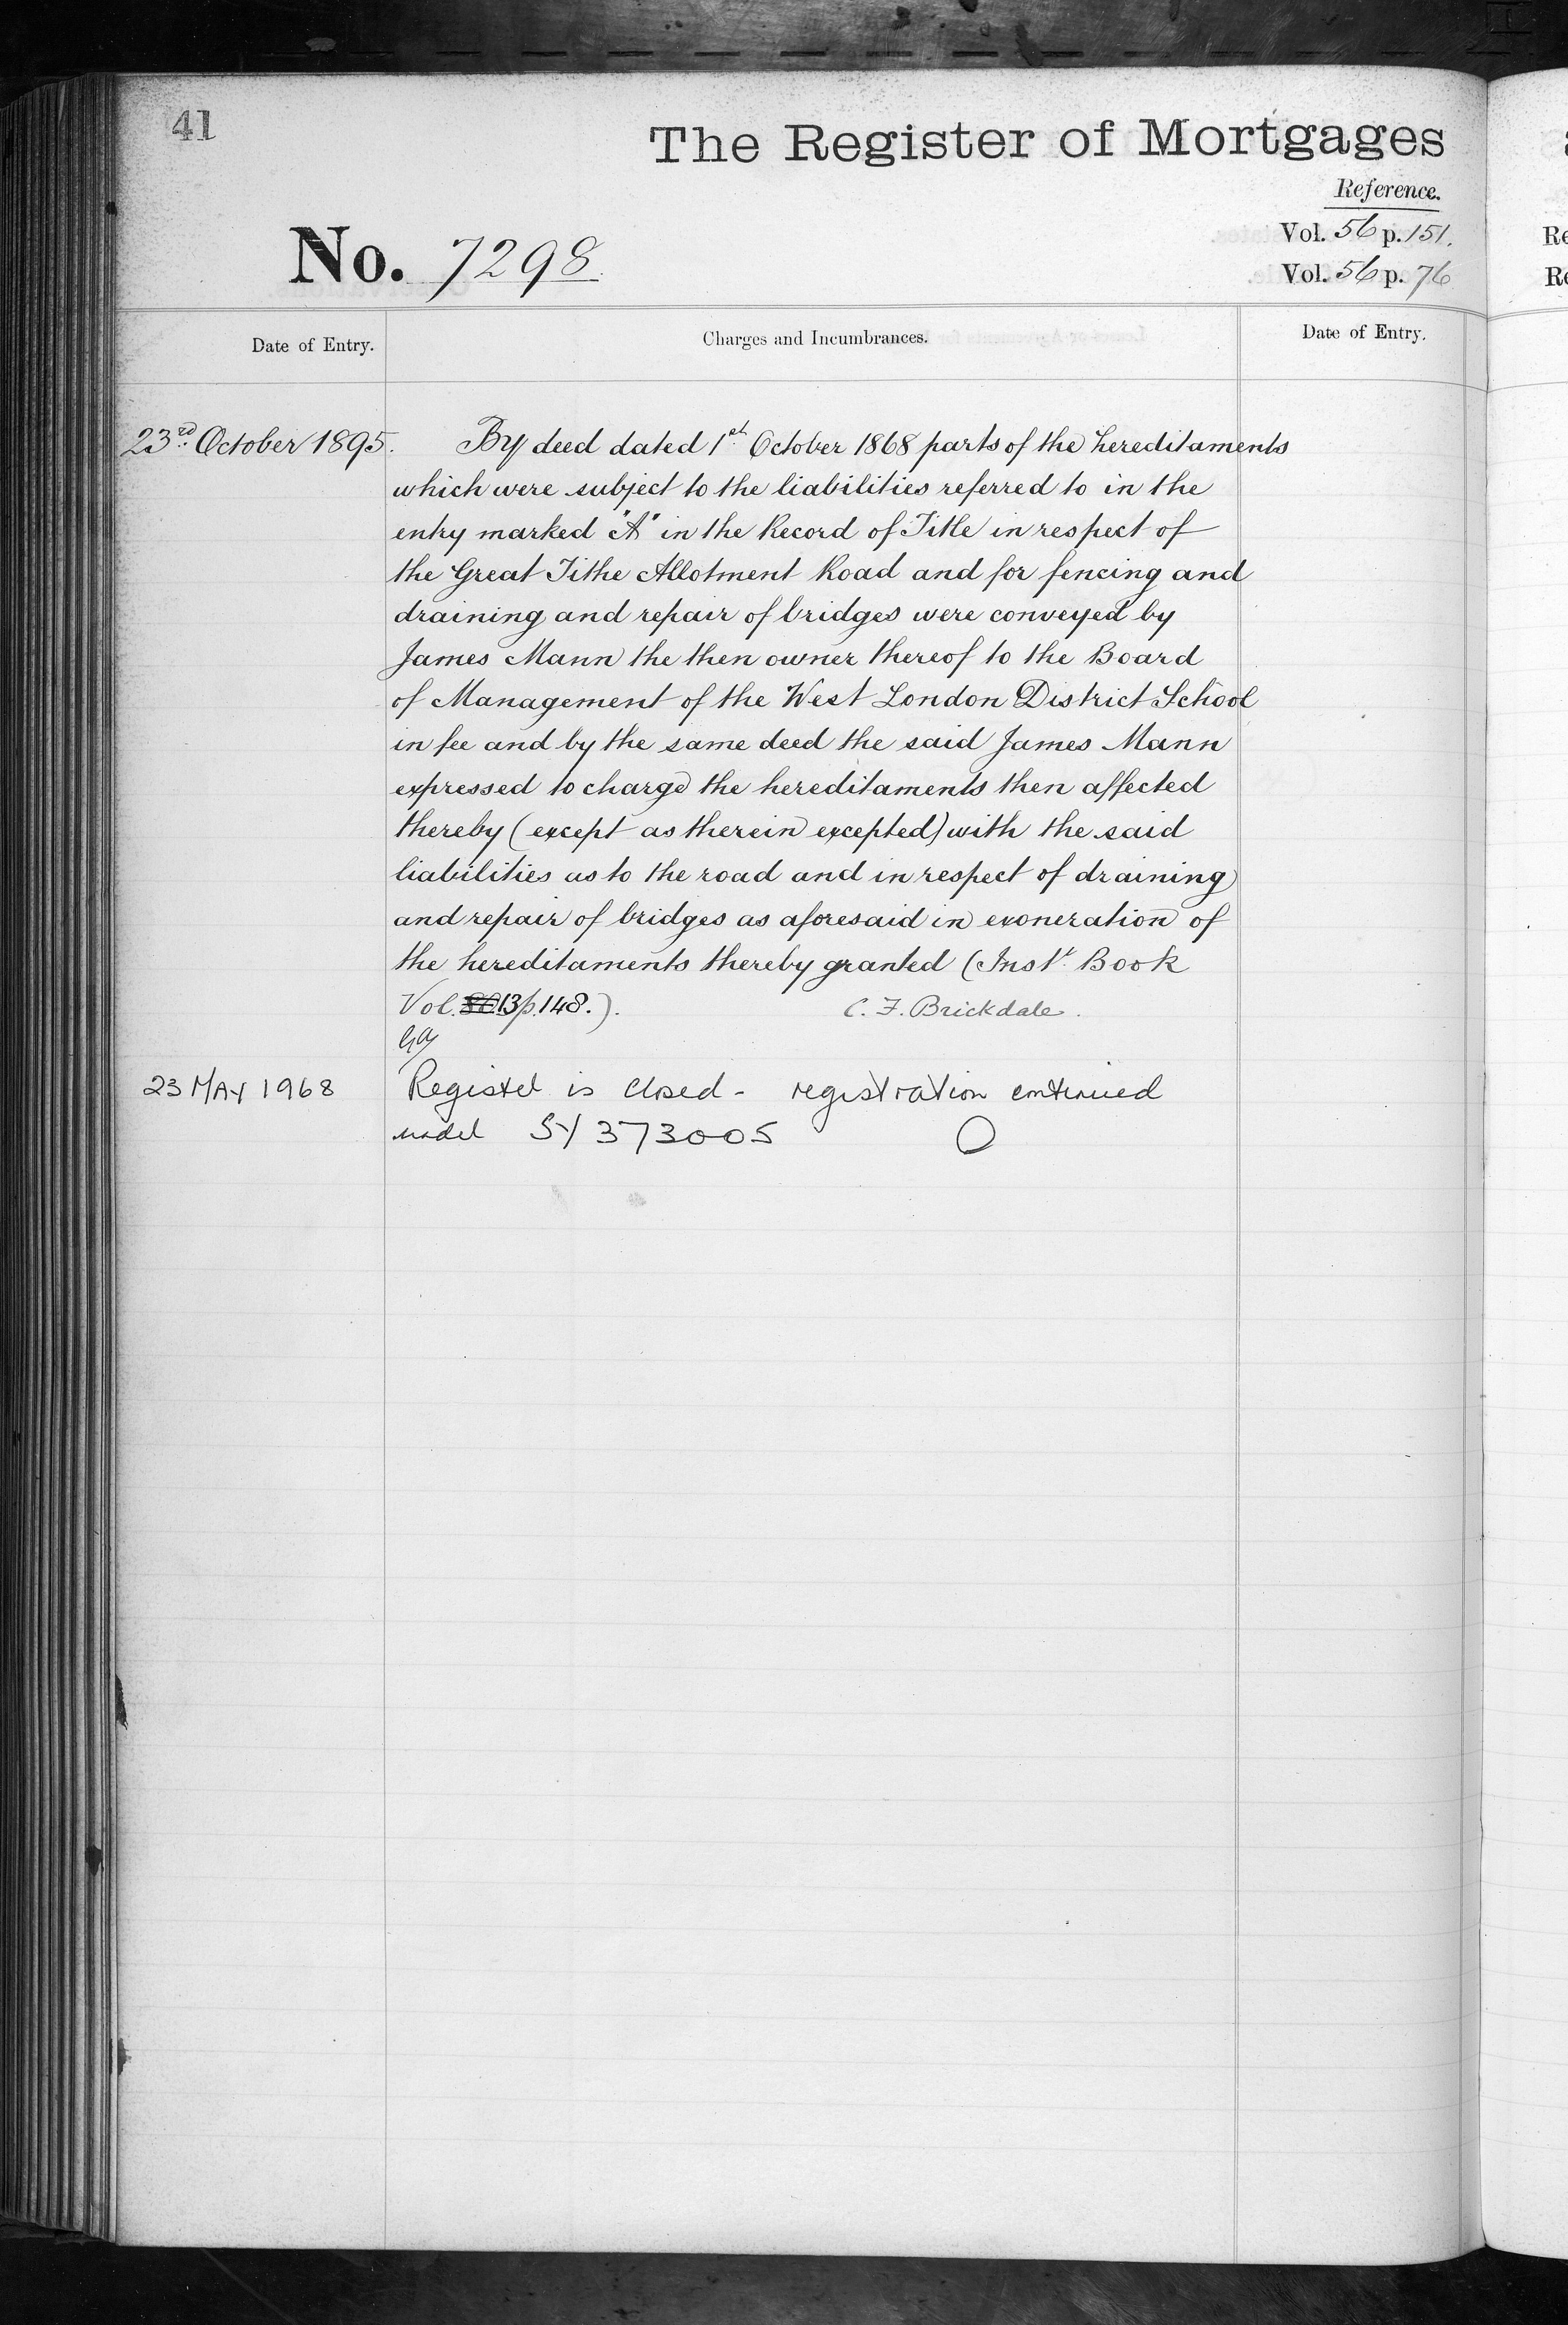 41
The Register of Mortgages
Reference.
No. 7298.
Vol. 56 p. 151.
Vol. 56 p. 76
Date of Entry.
Charges and Incumbrances.
Date of Entry.
23rd October 1895.
By deed dated 1st October 1868 parts of the hereditaments
which were subject to the liabilities referred to in the
entry marked "A" in the Record of Title in respect of
the Great Tithe Allotment Road and for fencing and
draining and repair of bridges were conveyed by
James Mann the then owner thereof to the Board
of Management of the West London District School
in fee and by the same deed the said James Mann
expressed to charge the hereditaments then affected
thereby (except as therein excepted) with the said
liabilities as to the road and in respect of draining
and repair of bridges as aforesaid in exoneration of
the hereditaments thereby granted (Inst. Book
Vol. 13 p. 148.).
C. F. Brickdale.
23 MAY 1968
Register is closed - registration continued
under SY 373005
Re
Re